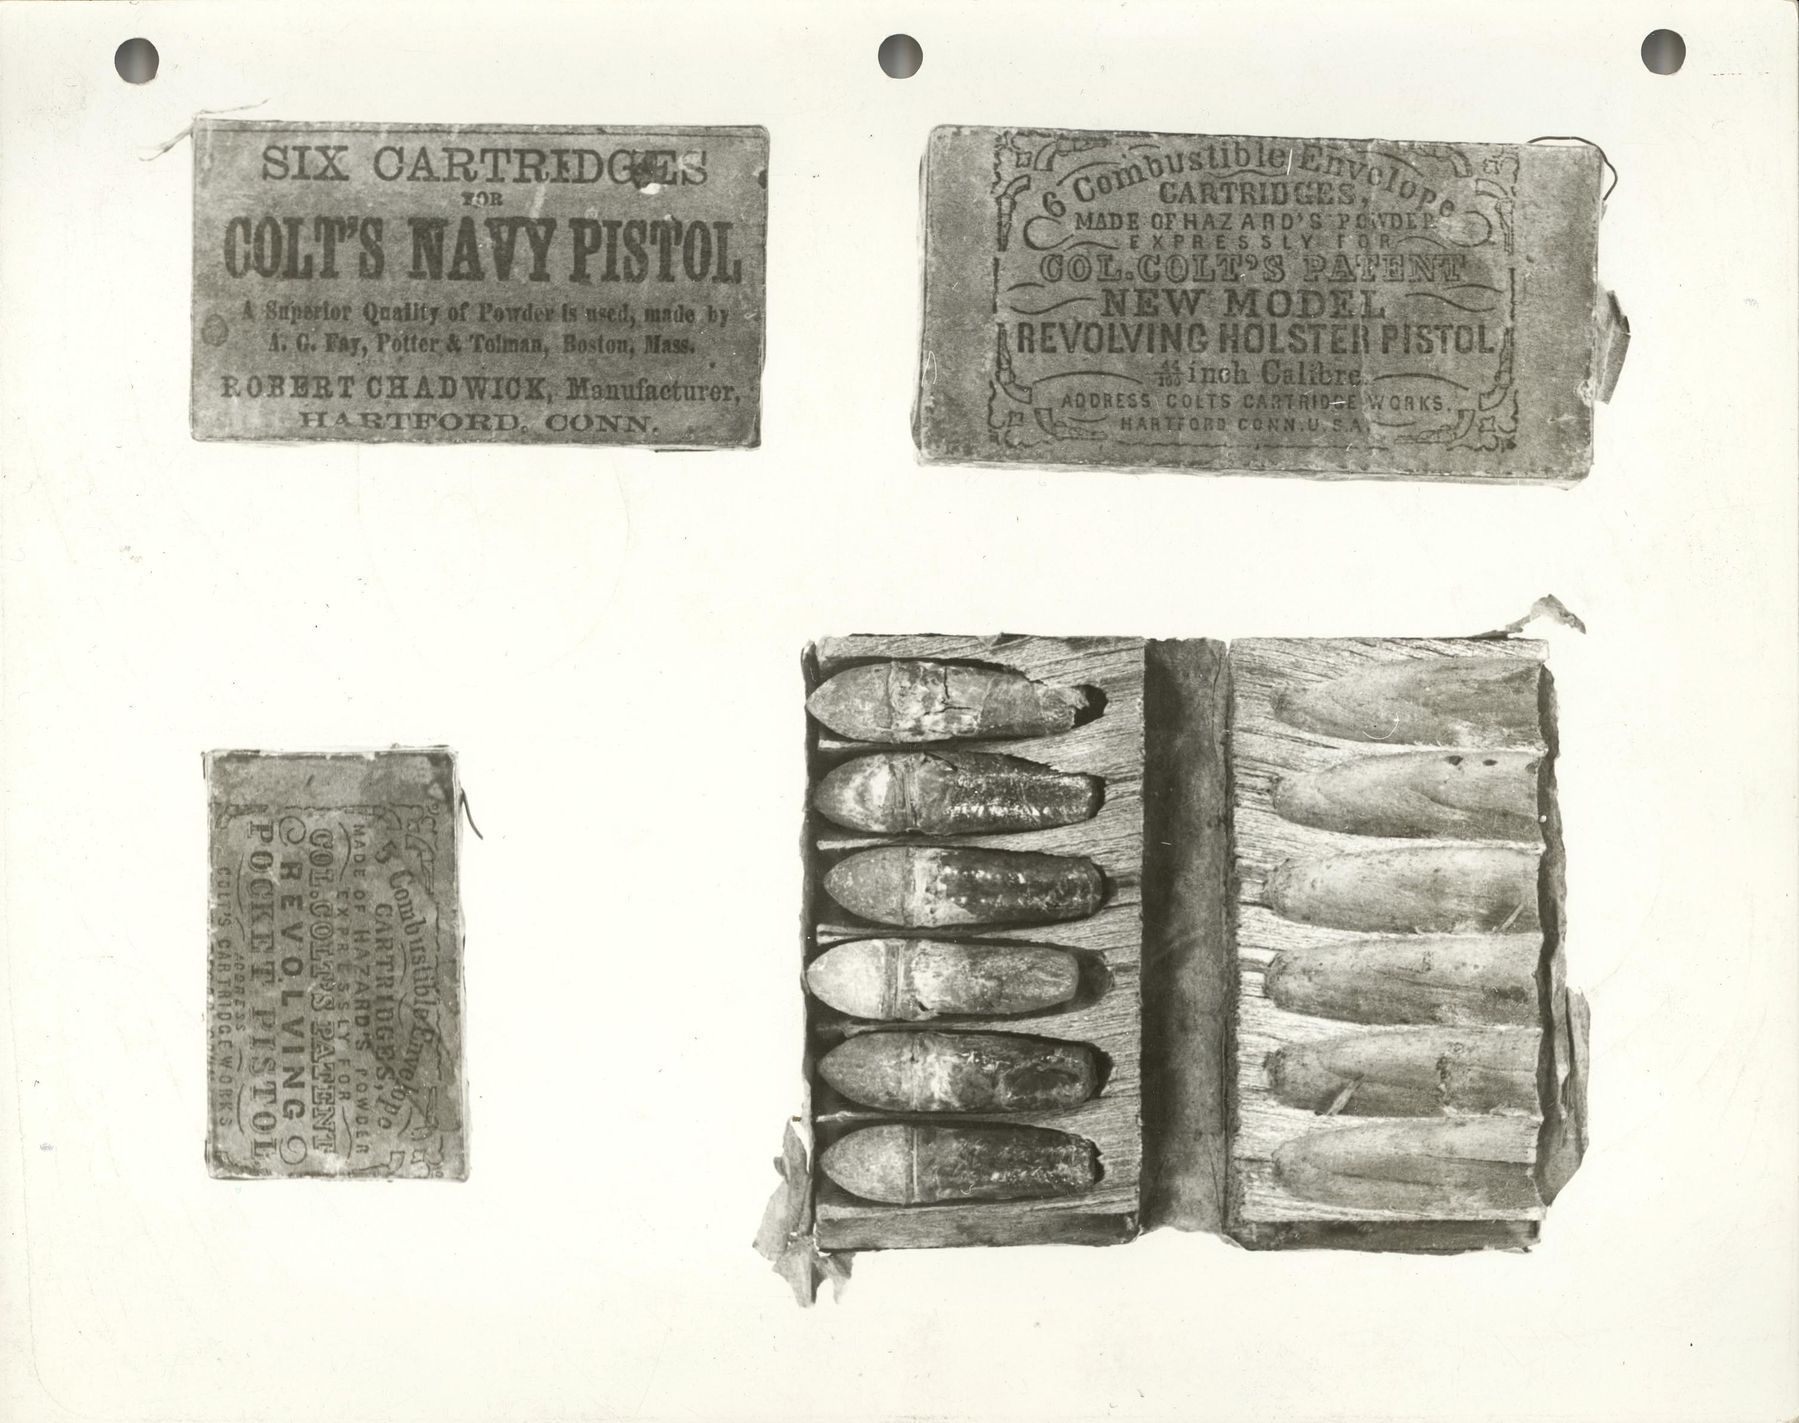 SIX CARTRIDGES
FOR
COLT'S NAVY PISTOL
A Superior Quality of Powder is used, made by
A. G. Fay, Potter & Tolman, Boston, Mass.
ROBERT CHADWICK, Manufacturer,
HARTFORD, CONN.
6 Combustible Envelope
CARTRIDGES,
MADE OF HAZARD'S POWDER
EXPRESSLY FOR
COL. COLT'S PATENT
NEW MODEL
REVOLVING HOLSTER PISTOL
44/100 inch Calibre.
ADDRESS COLTS CARTRIDGE WORKS.
HARTFORD CONN. U.S.A.
Combustible Envelope
CARTRIDGES,
MADE OF HAZARD'S POWDER
EXPRESSLY FOR
COL. COLT'S PATENT
REVOLVING
POCKET PISTOL
ADDRESS
COLT'S CARTRIDGE WORKS